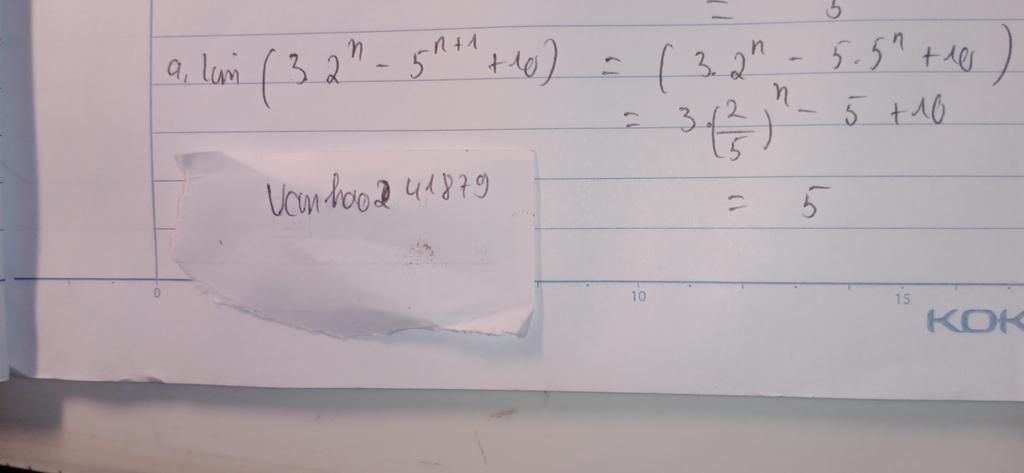 = 5
a, lim (3.2^n - 5^{n+1} + 10) = (3.2^n - 5.5^n + 10)
= 3.(2/5)^n - 5 + 10
= 5
Vanhao241879
0 10 15
KOK